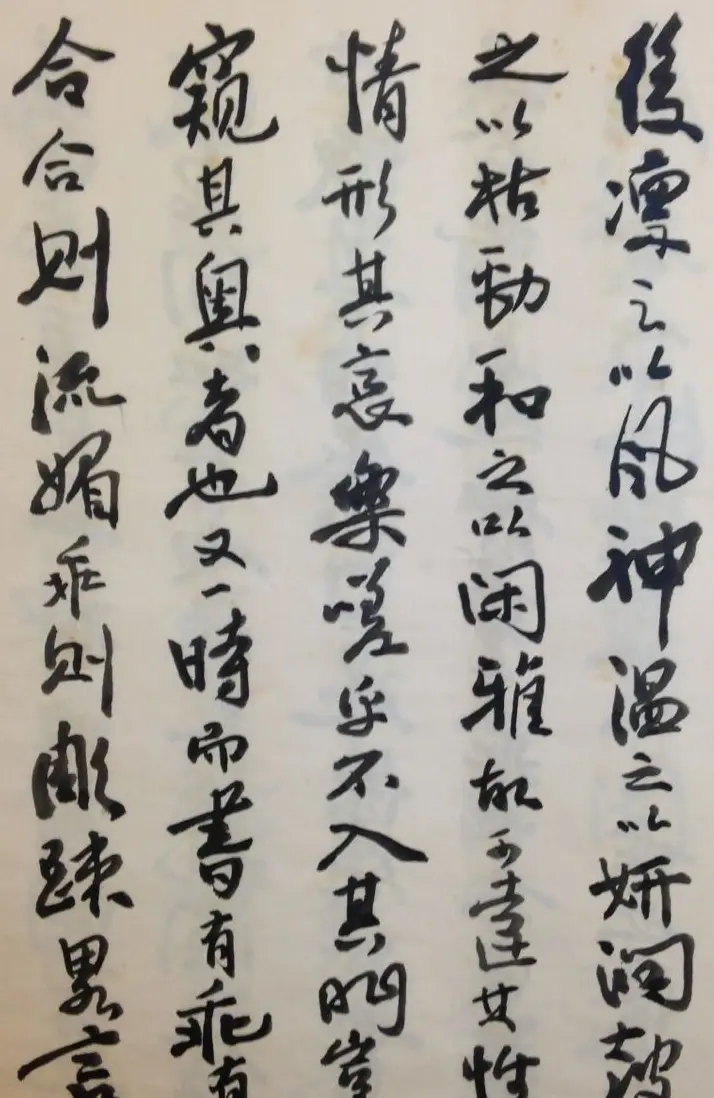 後凜之以風神溫之以妍潤鼓
之以枯勁和之以閑雅故可達其性
情形其哀樂嗟乎不入其門豈
窺其奧者也又一時而書有乖有
合合則流媚乖則彫疎畧言